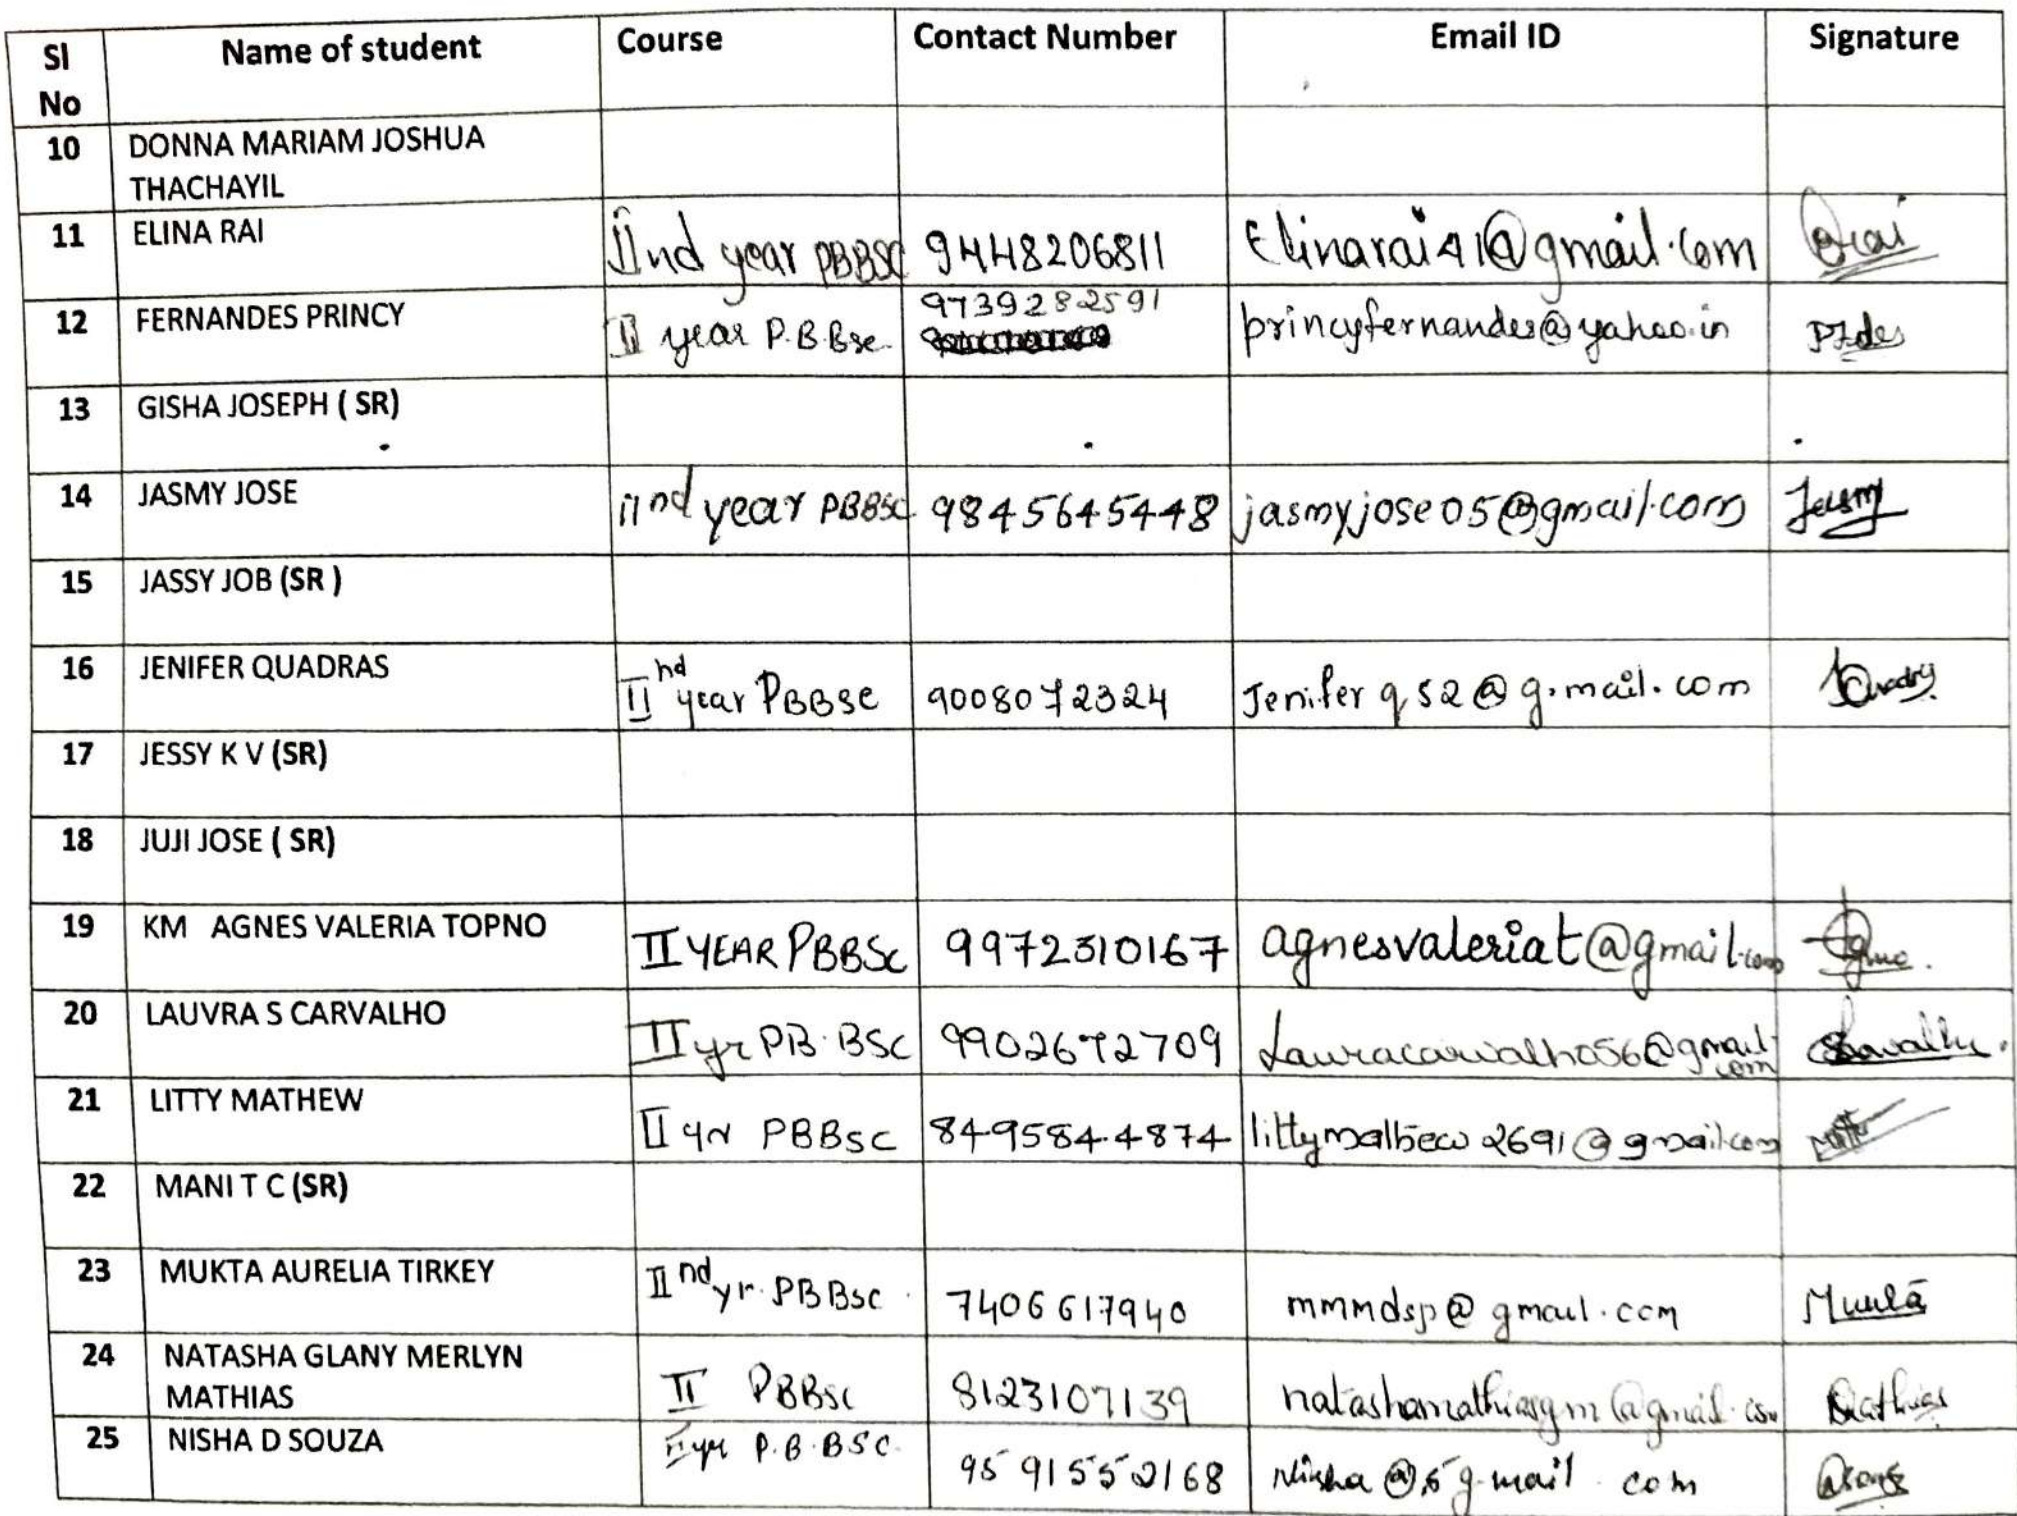 Sl No Name of student Course Contact Number Email ID Signature
10 DONNA MARIAM JOSHUA THACHAYIL
11 ELINA RAI IInd year PBBSC 9448206811 Elinarai41@gmail.com
12 FERNANDES PRINCY II year P.B.Bsc 9739282591 princyfernandes@yahoo.in
13 GISHA JOSEPH ( SR)
14 JASMY JOSE iind year PBBSC 9845645448 jasmyjose05@gmail.com Jasmy
15 JASSY JOB (SR )
16 JENIFER QUADRAS II nd year PBBSC 9008072324 Jenifer q52@g.mail.com
17 JESSY K V (SR)
18 JUJI JOSE ( SR)
19 KM AGNES VALERIA TOPNO II YEAR PBBSc 9972310167 agnesvaleriat@gmail.com
20 LAUVRA S CARVALHO II yr PB.BSC 9902672709 Lauracarvalho56@gmail.com
21 LITTY MATHEW II yr PBBSC 8495844874 littymathew2691@gmail.com
22 MANI T C (SR)
23 MUKTA AURELIA TIRKEY II nd yr. PBBSC 7406617940 mmmdsp@gmail.com
24 NATASHA GLANY MERLYN MATHIAS II PBBSc 8123107139 natashamathiasgm@gmail.com Mathias
25 NISHA D SOUZA II yr P.B.BSC. 9591552168 Nisha @5 g.mail.com